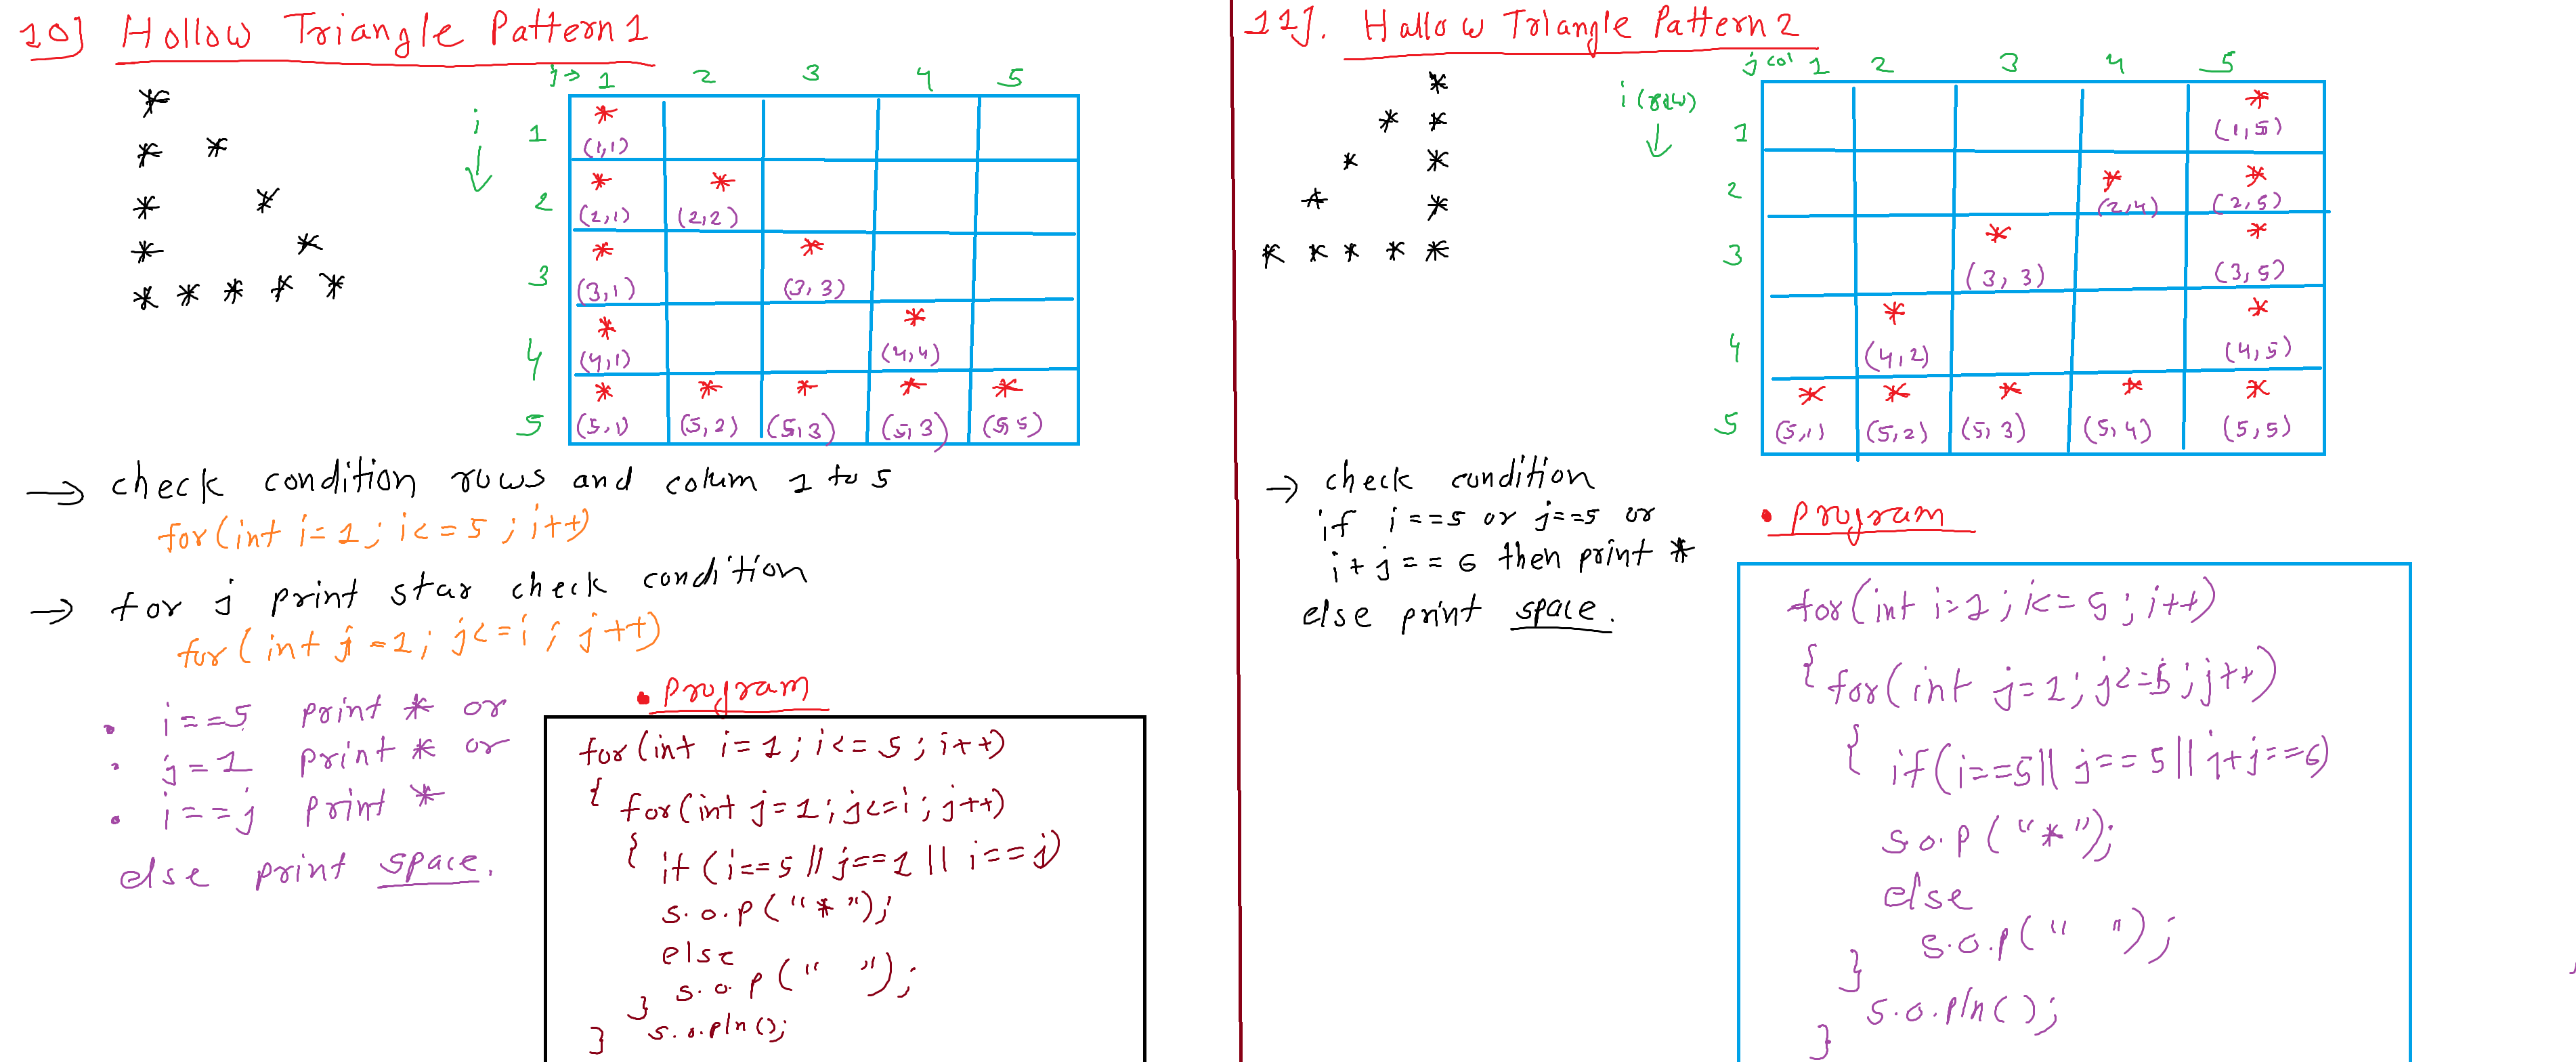 10] Hollow Triangle Pattern 1
*
* *
* *
* *
* * * * *
j→ 1 2 3 4 5
i ↓
1 * (1,1)
2 * (2,1) * (2,2)
3 * (3,1) * (3,3)
4 * (4,1) * (4,4)
5 * (5,1) * (5,2) * (5,3) * (5,3) * (5,5)
→ check condition rows and colum 1 to 5
for(int i=1; i<=5; i++)
→ for j print star check condition
for(int j=1; j<=i; j++)
• i==5 print * or
• j=1 print * or
• i==j print *
else print space.
• Program
for(int i=1; i<=5; i++)
{ for(int j=1; j<=i; j++)
{ if(i==5 || j==1 || i==j)
s.o.p("*");
else
s.o.p(" ");
}
s.o.pln();
}
11]. Hallow Triangle Pattern 2
*
* *
* *
* *
* * * * *
j col 1 2 3 4 5
i (row) ↓
1 * (1,5)
2 * (2,4) * (2,5)
3 * (3,3) * (3,5)
4 * (4,2) * (4,5)
5 * (5,1) * (5,2) * (5,3) * (5,4) * (5,5)
→ check condition
if i==5 or j==5 or
i+j==6 then print *
else print space.
• Program
for(int i=1; i<=5; i++)
{ for(int j=1; j<=5; j++)
{ if(i==5|| j==5|| i+j==6)
s.o.p("*");
else
s.o.p(" ");
}
s.o.pln();
}